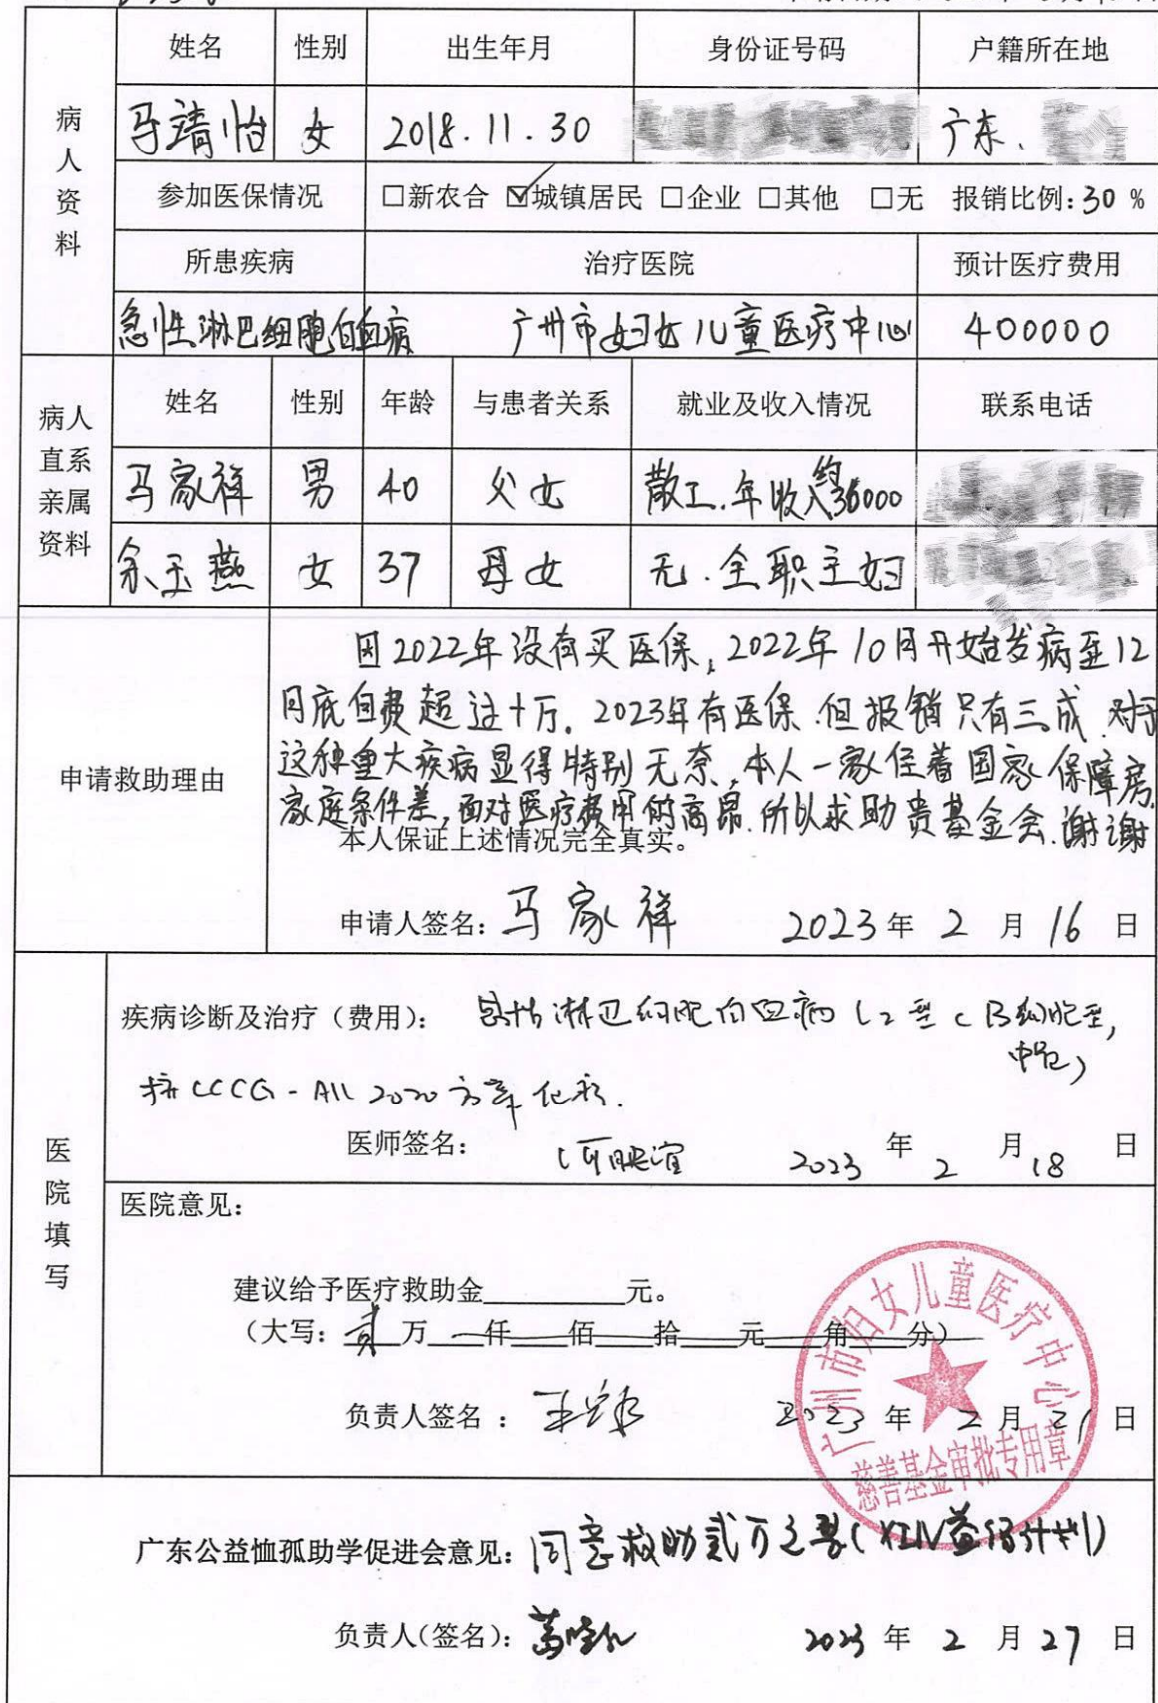 姓名 性别 出生年月 身份证号码 户籍所在地
病人资料
马靖怡 女 2018.11.30 广东、
参加医保情况 □新农合 ☑城镇居民 □企业 □其他 □无 报销比例:30 %
所患疾病 治疗医院 预计医疗费用
急性淋巴细胞白血病 广州市妇女儿童医疗中心 400000
病人直系亲属资料
姓名 性别 年龄 与患者关系 就业及收入情况 联系电话
马家祥 男 40 父女 散工.年收入约36000
余玉燕 女 37 母女 无.全职主妇
申请救助理由
因2022年没有买医保,2022年10月开始发病至12
月底自费超过十万.2023年有医保.但报销只有三成.对于
这种重大疾病显得特别无奈,本人一家住着国家保障房,
家庭条件差,面对医疗费用的高昂.所以求助贵基金会.谢谢
本人保证上述情况完全真实。
申请人签名:马家祥 2023年 2 月 16 日
医院填写
疾病诊断及治疗(费用): 急性淋巴细胞白血病 L2型(B细胞型,
中危)
CCCG-ALL 2020方案化疗.
医师签名: 2023 年 2 月 18 日
医院意见:
建议给予医疗救助金 元。
(大写: 贰 万 仟 佰 拾 元 角 分)
负责人签名 : 2023 年 2 月 21 日
广州市妇女儿童医疗中心
慈善基金审批专用章
广东公益恤孤助学促进会意见: 同意救助贰万元整( 计划)
负责人(签名): 2023 年 2 月 27 日